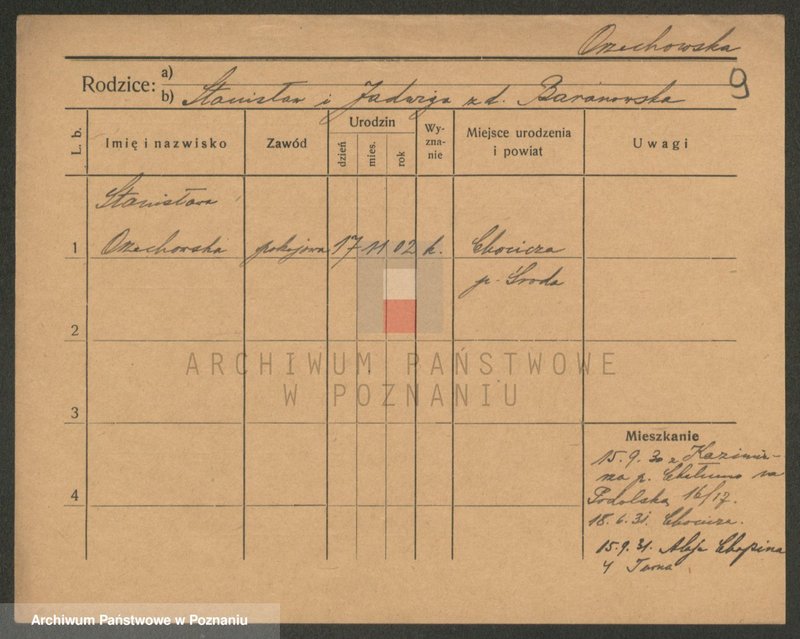 Orzechowska
9
Rodzice: a)
b) Stanisław i Jadwiga z d. Baranowska
L. b.
Imię i nazwisko
Zawód
Urodzin
dzień
mies.
rok
Wy-
zna-
nie
Miejsce urodzenia
i powiat
Uwagi
Stanisława
1 Orzechowska pokojowa 17 11 02 k. Chocicza
p. Środa
2
ARCHIWUM PAŃSTWOWE
W POZNANIU
3
Mieszkanie
15.9.30 z Kazimie-
p. na
4 Podolska 16/17.
18.6.31 Chocicza.
15.9.31. Aleje Chopina
4
Archiwum Państwowe w Poznaniu